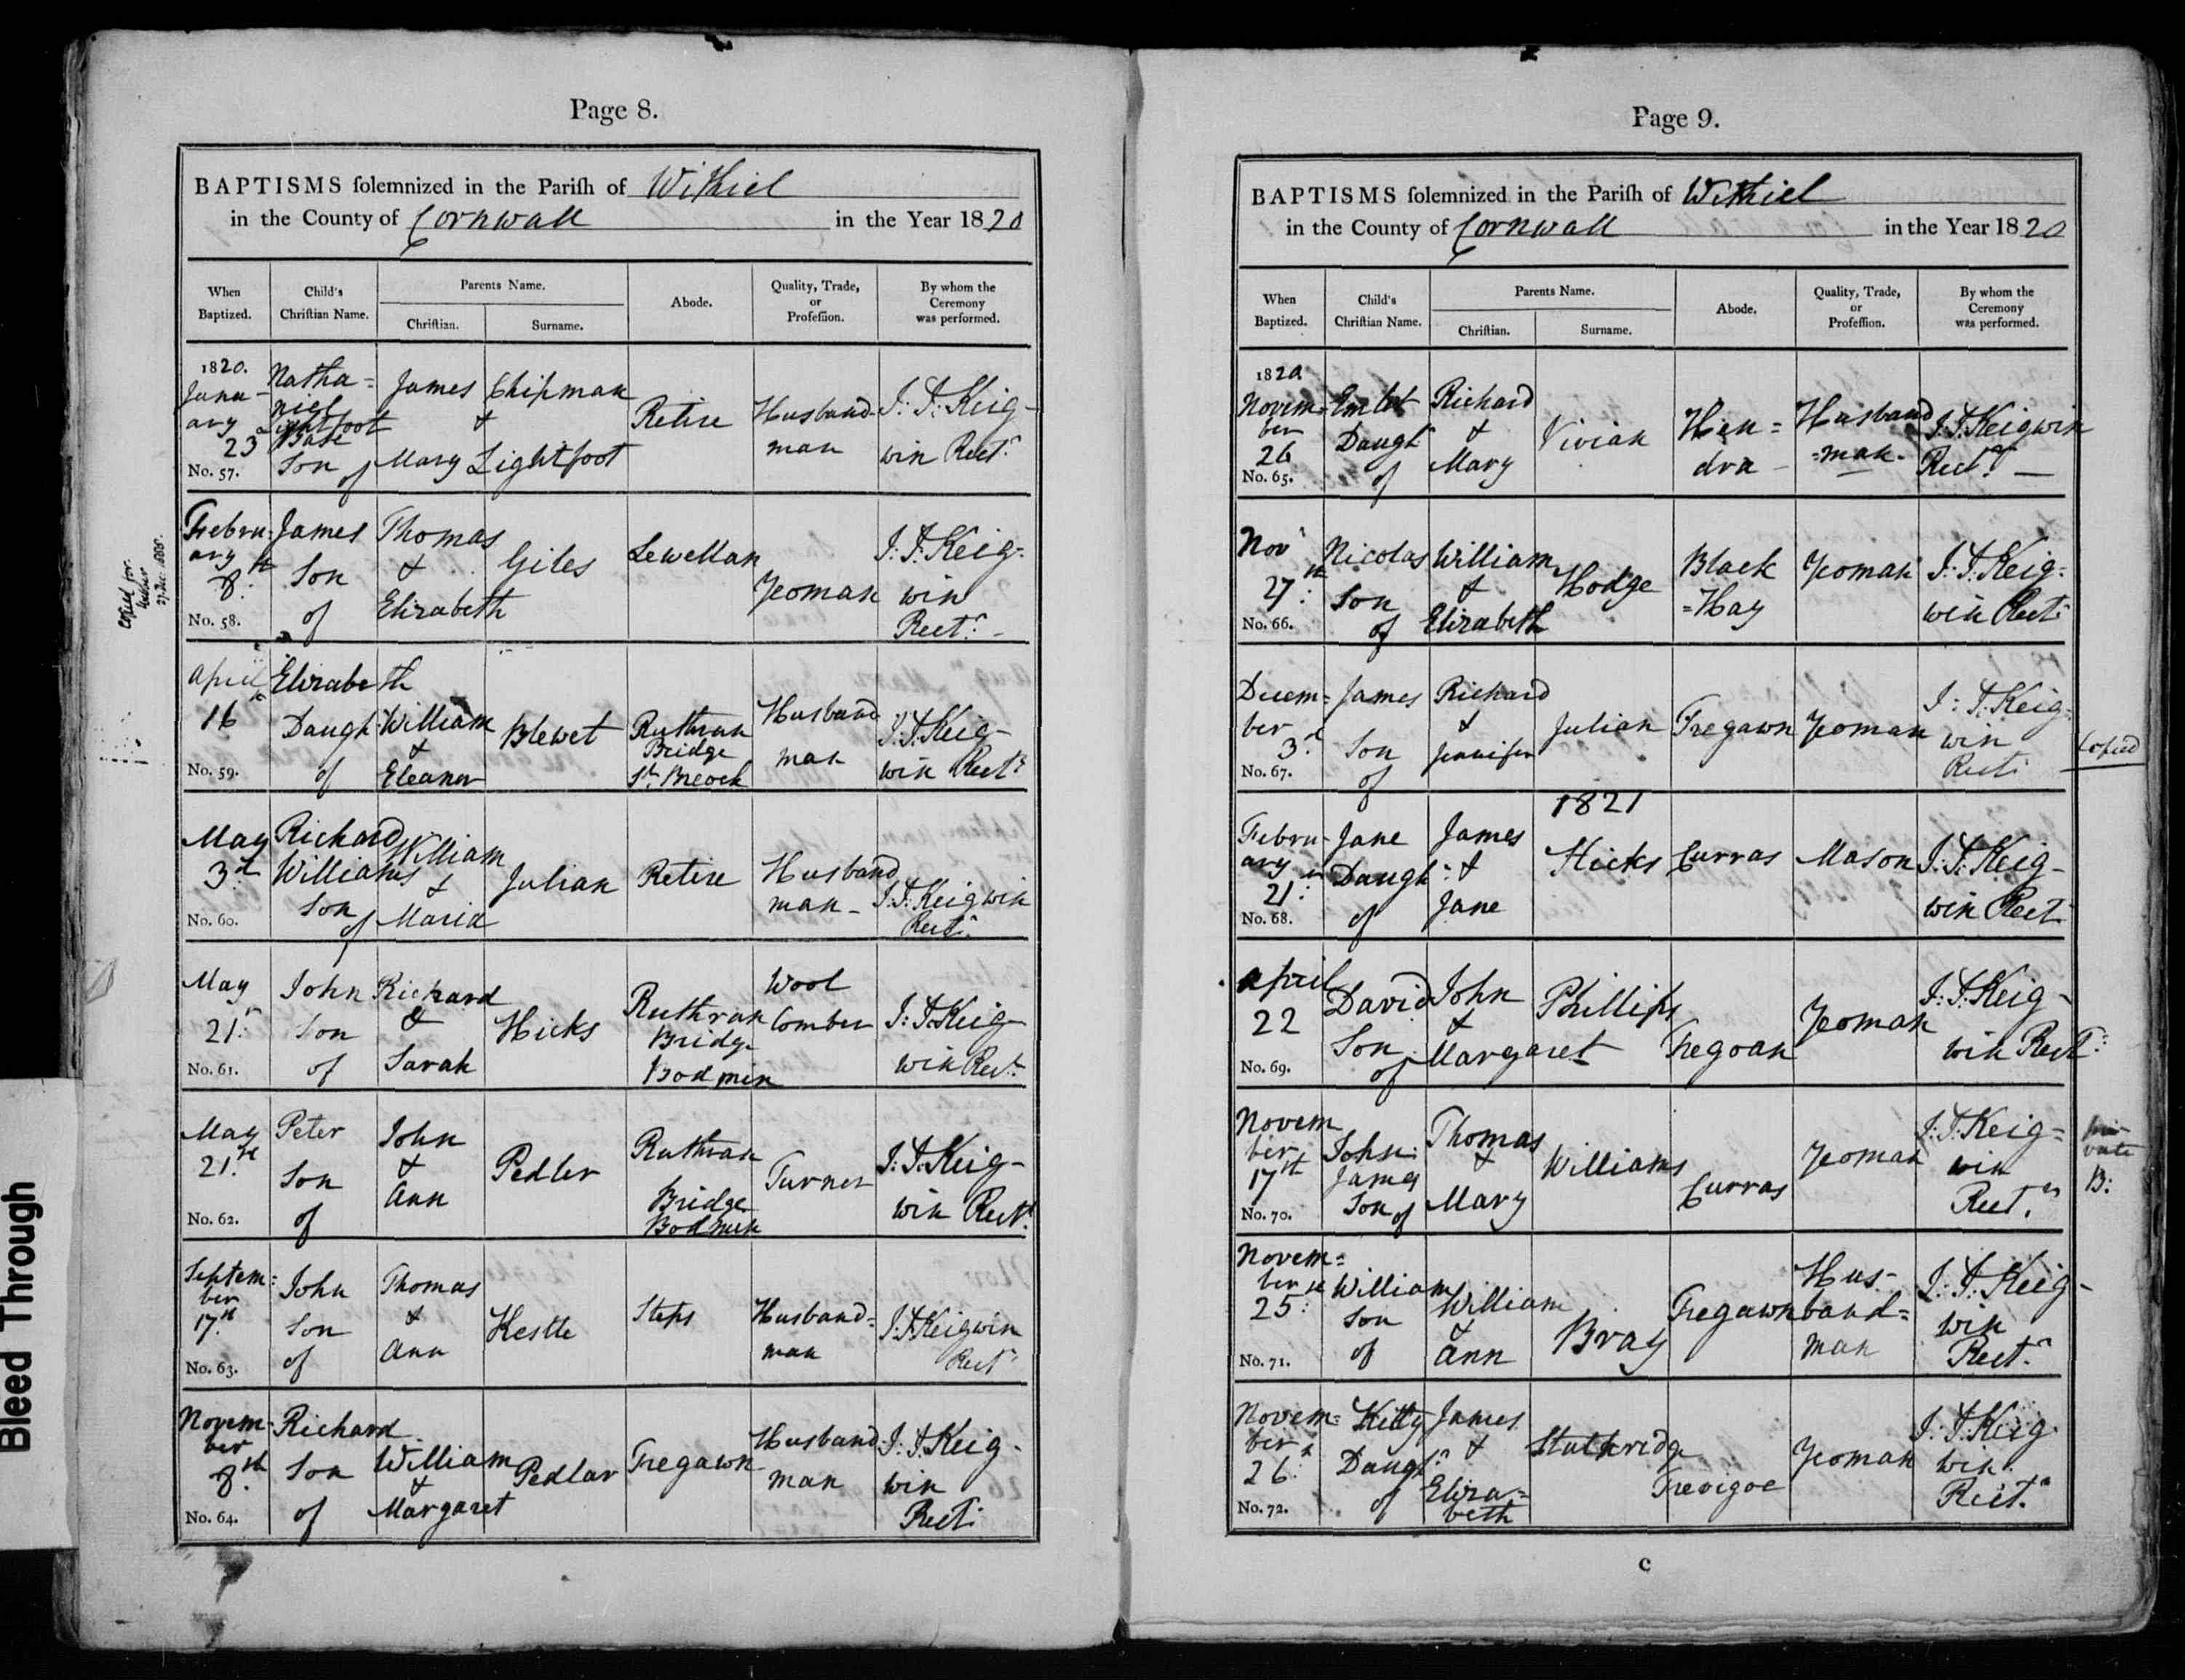 Page 8.
BAPTISMS solemnized in the Parish of Withiel
in the County of Cornwall in the Year 1820
When Baptized. Child's Christian Name. Parents Name. Christian. Surname. Abode. Quality, Trade, or Profession. By whom the Ceremony was performed.
1820. Janu-ary 23 No. 57. Natha=niel Lightfoot Base Son of James & Mary Chipman Lightfoot Retire Husband-man J: T: Keig-win Rect.r
Febru-ary 8:th No. 58. James Son of Thomas & Elizabeth Giles Lewellan Yeoman J: T: Keig-win Rect.r
April 16 No. 59. Elizabeth Daugh.r of William & Eleanor Blewet Ruthran Bridge St. Breock Husband man J: T: Keig-win Rect.r
May 3.d No. 60. Richard Williams Son of William & Maria Julian Retire Husband man- J: T: Keigwin Rect.r
May 21: No. 61. John Son of Richard & Sarah Hicks Ruthran Bridge Bodmin Wool Comber J: T: Keig-win Rect.r
May 21. No. 62. Peter Son of John & Ann Pedler Ruthran Bridge Bodmin Turner J: T: Keig-win Rect.r
Septem=ber 17.th No. 63. John Son of Thomas & Ann Kestle Steps Husband=man J: T: Keigwin Rect.r
Novem-ber 8.th No. 64. Richard Son of William & Margaret Pedlar Tregawn Husband man J: T: Keig-win Rect:
Copied for
27 Dec.
Bleed Through
Page 9.
BAPTISMS solemnized in the Parish of Withiel
in the County of Cornwall in the Year 1820
When Baptized. Child's Christian Name. Parents Name. Christian. Surname. Abode. Quality, Trade, or Profession. By whom the Ceremony was performed.
1820 Novem=ber 26 No. 65. Emlet Daugh.r of Richard & Mary Vivian Hen=dra Husband=man. J: T: Keigwin Rect.r
Nov.r 27: No. 66. Nicolas Son of William & Elizabeth Hodge Black=Hay Yeoman J: T: Keig-win Rect:
Decem=ber 3.d No. 67. James Son of Richard & Jennifer Julian Tregawn Yeoman J: T: Keig-win Rect:
Copied
1821
Febru-ary 21: No. 68. Jane Daugh: of James & Jane Hicks Curras Mason J: T: Keig-win Rect
April 22 No. 69. David Son of John & Margaret Phillips Tregoan Yeoman J: T: Keig-win Rect.r
Novem ber 17th No. 70. John James Son of Thomas & Mary Williams Curras Yeoman J: T: Keig=win Rect.r
pri-vate B:
Novem=ber 25: No. 71. William Son of William & Ann Bray Tregawn Hus-band=man J: T: Keig-win Rect.r
Novem=ber 26: No. 72. Kitty Daugh.r of James & Eliza=beth Stuthridge Trevigoe Yeoman J: T: Keig-win Rect.r
C